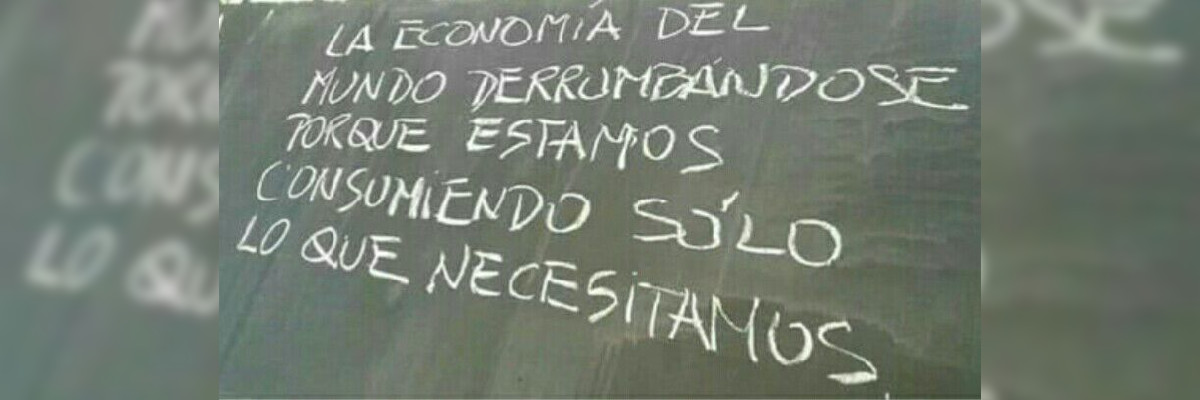 LA ECONOMÍA DEL
MUNDO DERRUMBÁNDOSE
PORQUE ESTAMOS
CONSUMIENDO SÓLO
LO QUE NECESITAMOS